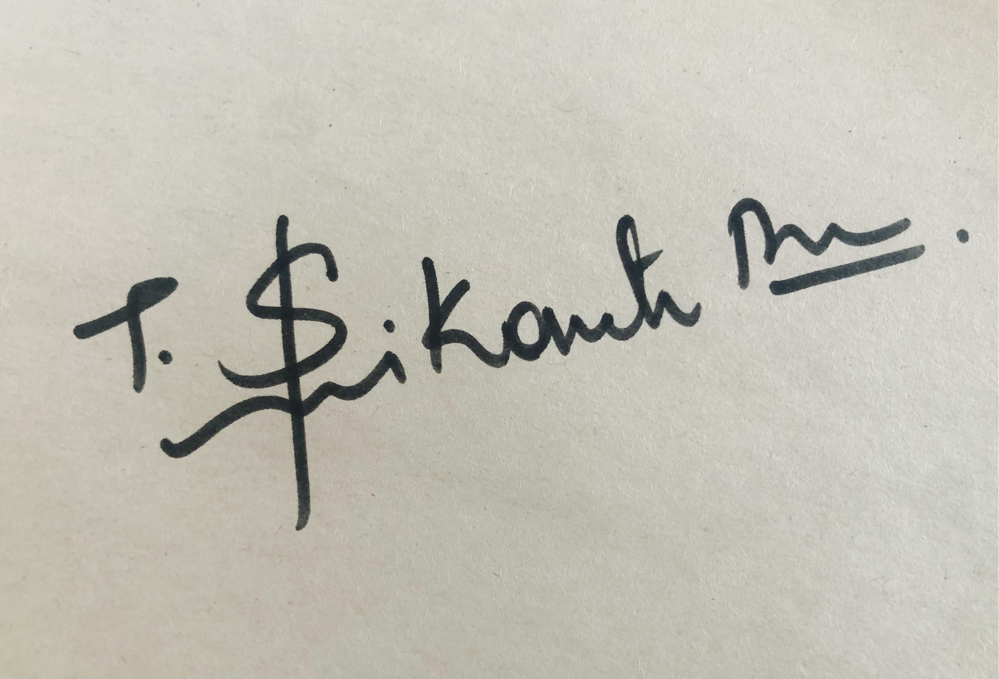 T. Srikanth